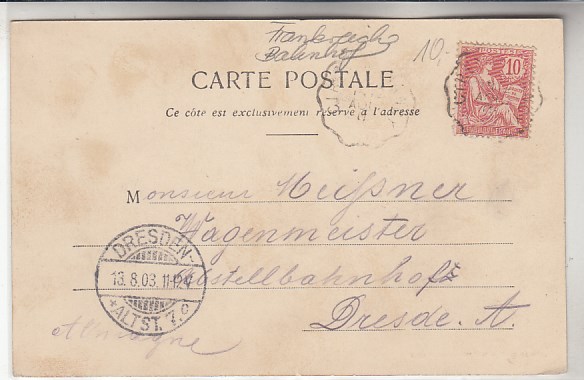 Frankreich
Bahnhof
10,-
CARTE POSTALE
Ce côté est exclusivement réservé à l'adresse
POSTES
10
Monsieur Meißner
Wagenmeister
DRESDEN-
13.8.03. 11-12V
*ALTST. 7.c
Dresde. A.
Allemagne